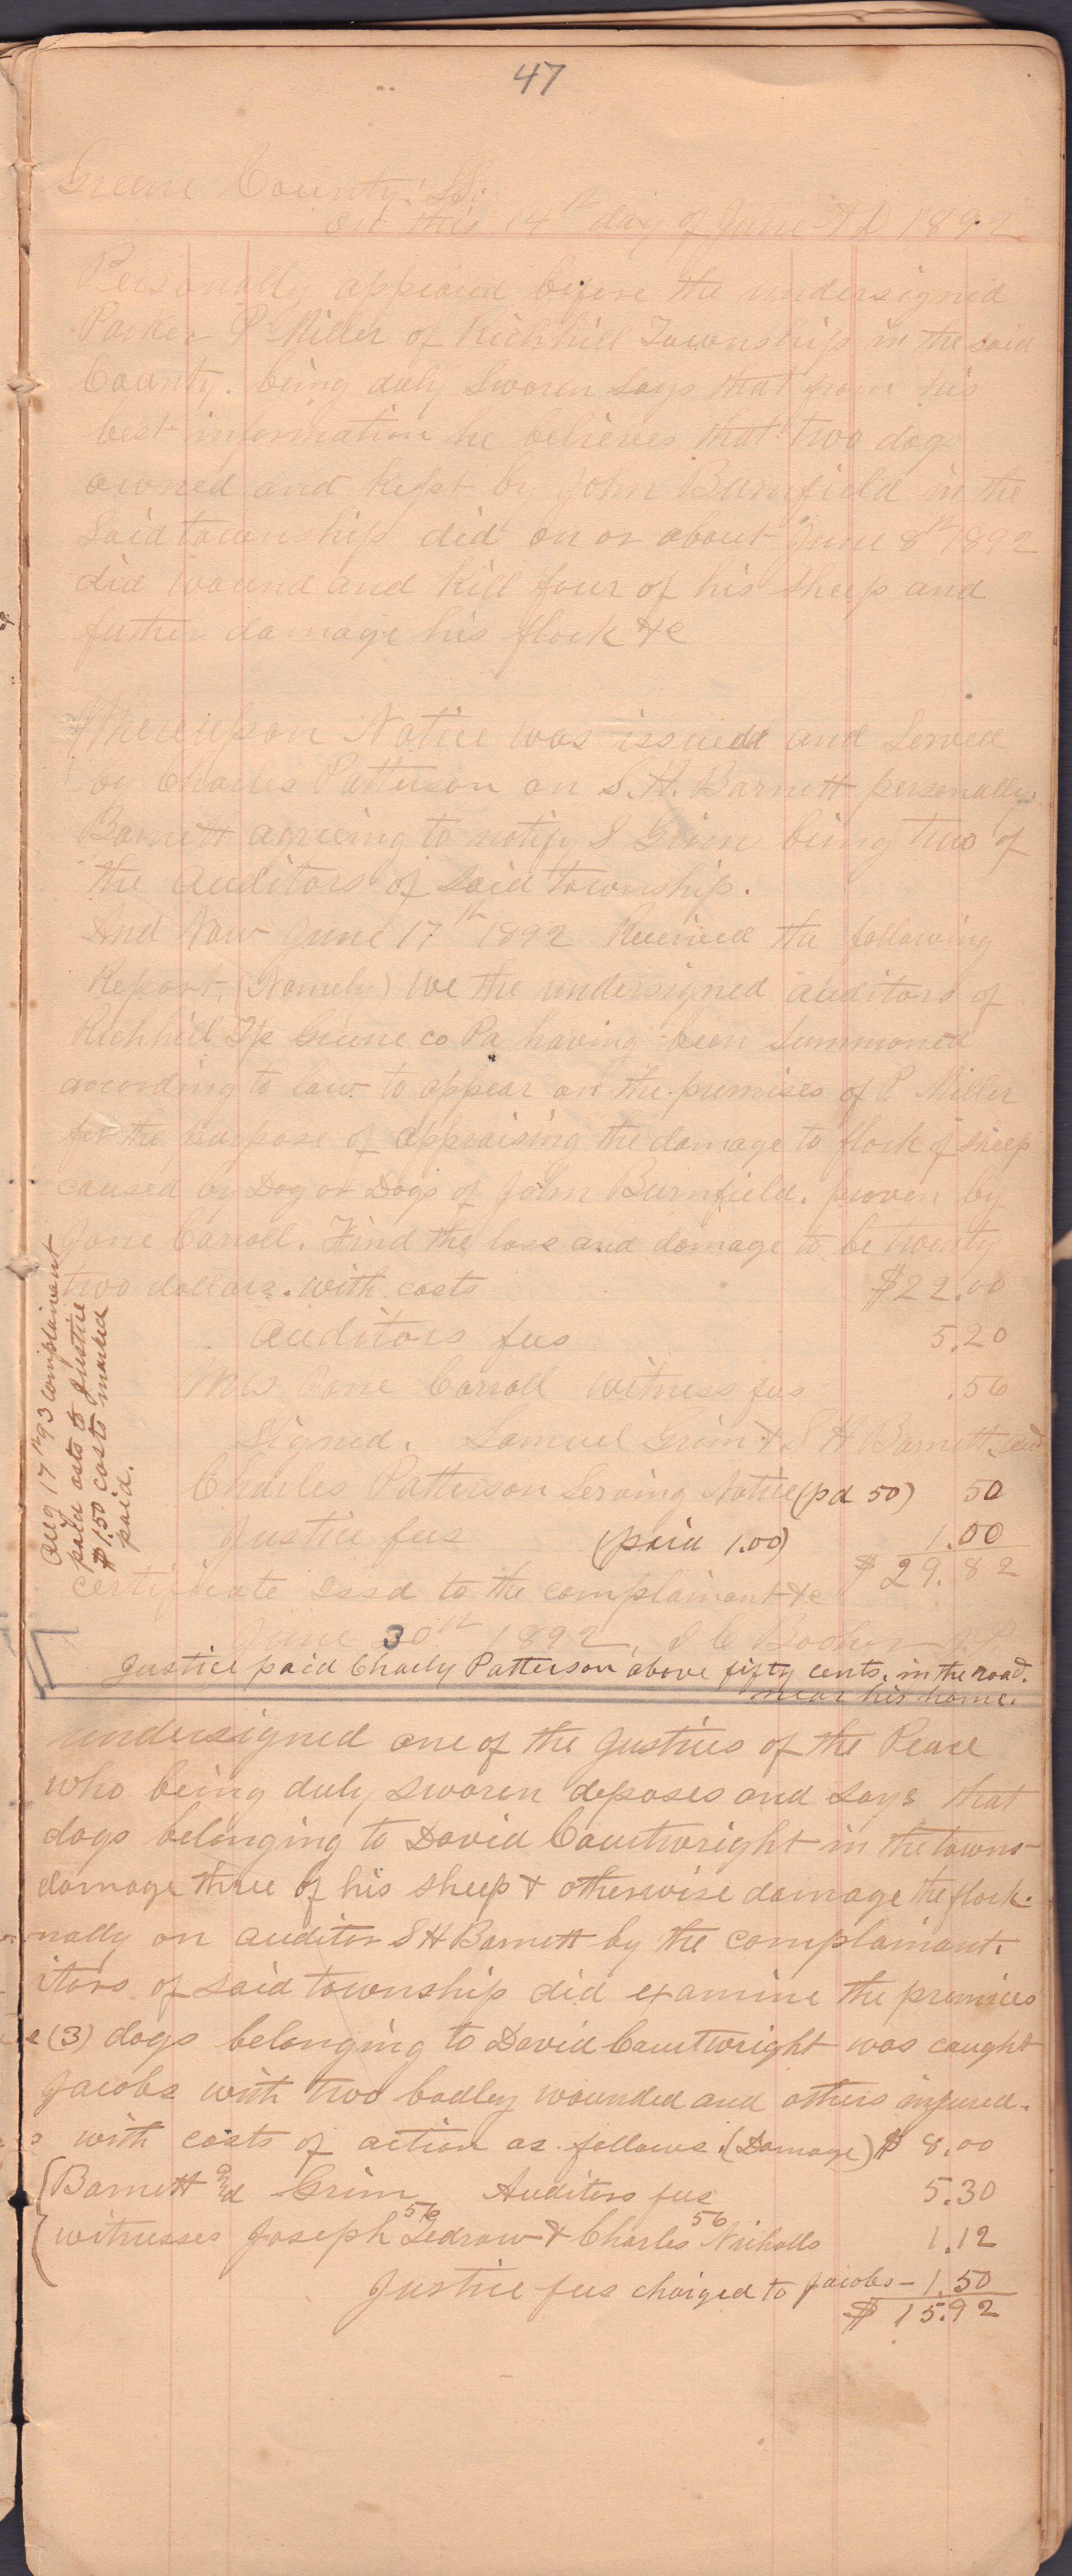 47
Greene County. SS.
on this 14th day of June A D 1892
Personally appeared before the undersigned
Parker P Miller of Richhill Township in the said
County. being duly Sworen Says that from his
best information he believes that two dogs
owned and kept by John Barnfield in the
Said township did on or about June 8th 1892
did wound and kill four of his sheep and
futher damage his flock &c
Whereupon Notice was issued and Served
by Charles Patterson on S. H. Barnett personally.
Barnett agreeing to notify S Grim being two of
the auditors of said township.
And Now June 17th 1892 Received the following
Report, (Namely) we the undersigned auditors of
Richhill Tp Greene co Pa having been Summoned
according to law to appear on the premises of P. Miller
for the purpose of appraising the damage to flock of sheep
caused by Dog or Dogs of John Burnfield. proven by
Jane Carroll. Find the loss and damage to be twenty
two dollars. with costs $22.00
Auditors fees 5.20
Mrs Jane Carroll witness fees .56
Signed. Samuel Grim & S H Barnett
Charles Patterson Serving Notice (pd 50) 50
Justice fees (paid 1.00) 1.00
$29.82
Certificate Issd to the complainant &c
June 30th 1892, J C Booher J.P.
Aug 17th 93 complainant
paid costs to Justice
$1.50 costs marked
paid.
Justice paid Charly Patterson above fifty cents. in the road.
near his home.
undersigned one of the Justices of the Peace
who being duly sworen deposes and Says that
dogs belonging to David Courtwright in the towns-
damage three of his sheep & otherwise damage the flock.
nally on auditor S H Barnett by the complainant.
itors of said township did examine the premises
e (3) dogs belonging to David Courtwright was caught
Jacobs with two badley wounded and others injured.
s with costs of action as follows. (Damage) $ 8.00
Barnett and Grim Auditors fees 5.30
witnesses Joseph Ledrow 56 & Charles Nicholls 56 1.12
Justice fees charged to Jacobs - 1.50
$ 15.92